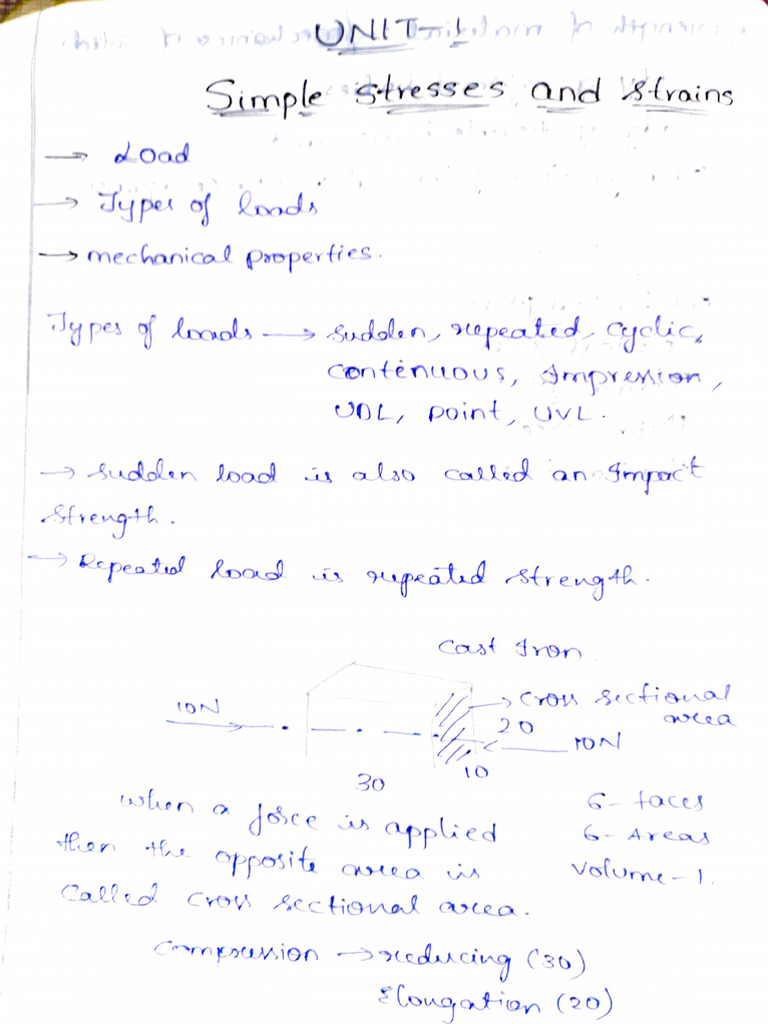 UNIT-1
Simple stresses and strains
→ Load
→ Types of loads
→ mechanical properties.
Types of loads → sudden, repeated, cyclic,
contenuous, Impression,
UDL, point, UVL.
→ sudden load is also called an Impact
strength.
→ Repeated load is repeated strength.
cast Iron
10N
→ cross sectional
area
20
10N
30
10
when a force is applied
then the opposite area is
called cross sectional area.
6- faces
6- Areas
volume-1.
compression → reducing (30)
Elongation (20)